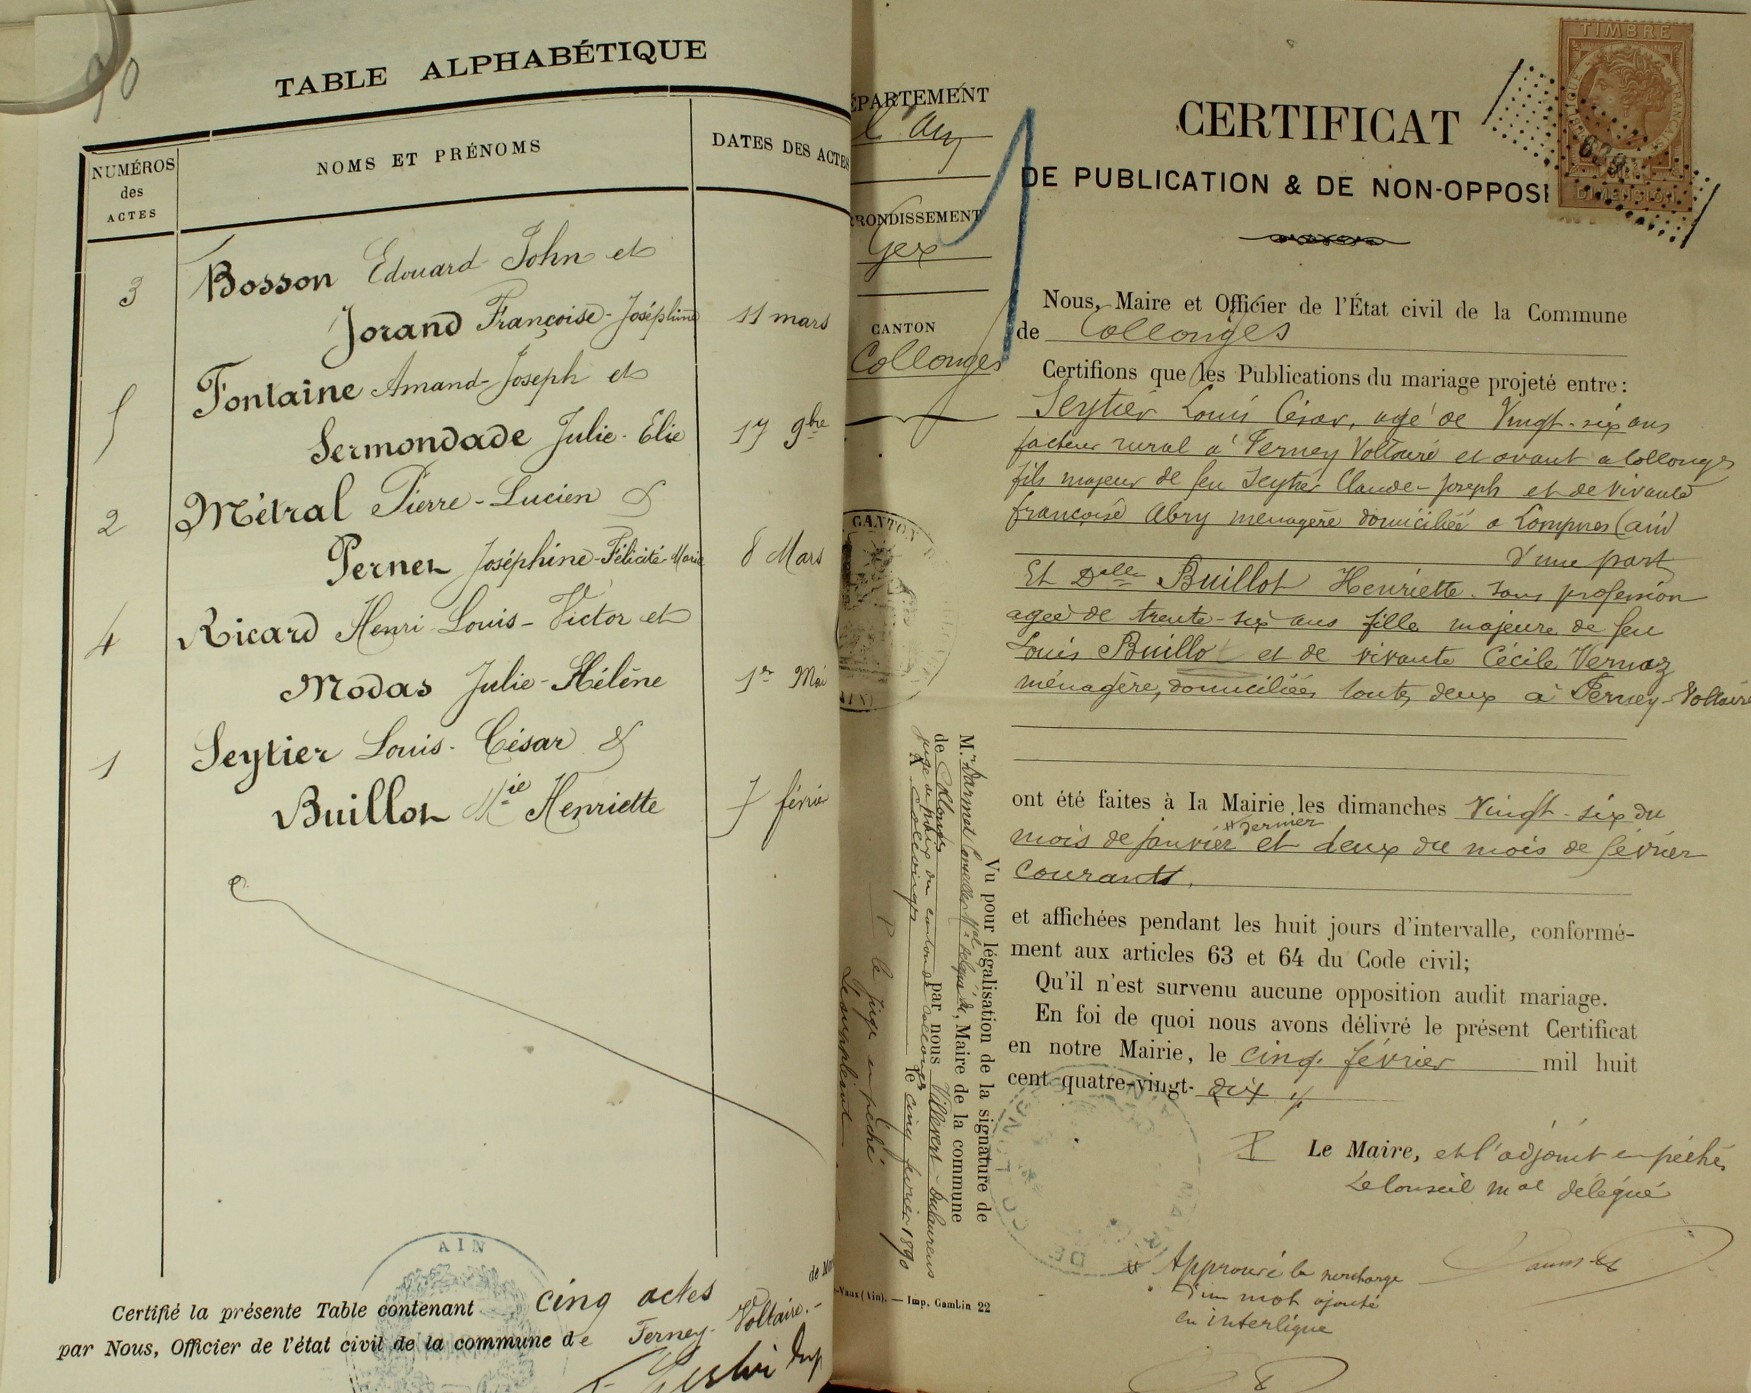 90
TABLE ALPHABÉTIQUE
NUMÉROS
des
ACTES
NOMS ET PRÉNOMS
DATES DES ACTES
3 Bosson Edouard John et
Jorand Françoise-Joséphine 11 mars
5 Fontaine Amand-Joseph et
Sermondade Julie-Elie 17 9bre
2 Métral Pierre-Lucien &
Pernet Joséphine-Félicité-Marie 8 Mars
4 Ricard Henri-Louis-Victor et
Modas Julie-Hélène 1er Mai
1 Seytier Louis-César &
Buillot Mie Henriette 7 févrie
AIN
Certifié la présente Table contenant cinq actes
par Nous, Officier de l'état civil de la commune de Ferney-Voltaire.-
ÉPARTEMENT
l'Ain
RONDISSEMENT
Gex
CANTON
Collonges
CANTON
TIMBRE
CERTIFICAT
DE PUBLICATION & DE NON-OPPOSI
Nous, Maire et Officier de l'État civil de la Commune
de Collonges
Certifions que les Publications du mariage projeté entre:
Seytier Louis César, agé de Vingt-six ans
facteur rural a Ferney Voltaire et avant a Collonges
fils majeur de feu Seytier Claude-Joseph et de vivante
françoise Abry menagère domiciliée a Lompnes (ain)
d'une part
Et Delle Buillot Henriette sans profession
agée de trente-six ans fille majeure de feu
Louis Buillot et de vivante Cécile Vernaz
ménagère, domiciliées toutes deux à Ferney-Voltaire
ont été faites à la Mairie les dimanches Vingt-six du
# dernier
mois de janvier # et deux du mois de février
courant.
et affichées pendant les huit jours d'intervalle, conformé-
ment aux articles 63 et 64 du Code civil;
Qu'il n'est survenu aucune opposition audit mariage.
En foi de quoi nous avons délivré le présent Certificat
en notre Mairie, le cinq février mil huit
cent quatre-vingt-dix
Le Maire, et l'adjoint empêchés
Le Conseil mal délégué
# Approuvé la surcharge
d'un mot ajouté
en interligne
Vu pour légalisation de la signature de
M. Conseiller Mal délégué de, Maire de la commune
de Collonges par nous
juge de paix du canton de Collonges
A Collonges le cinq février 1890
P. le juge empêché
Le suppléant
-Vaux (Ain). — Imp. Gambin 22